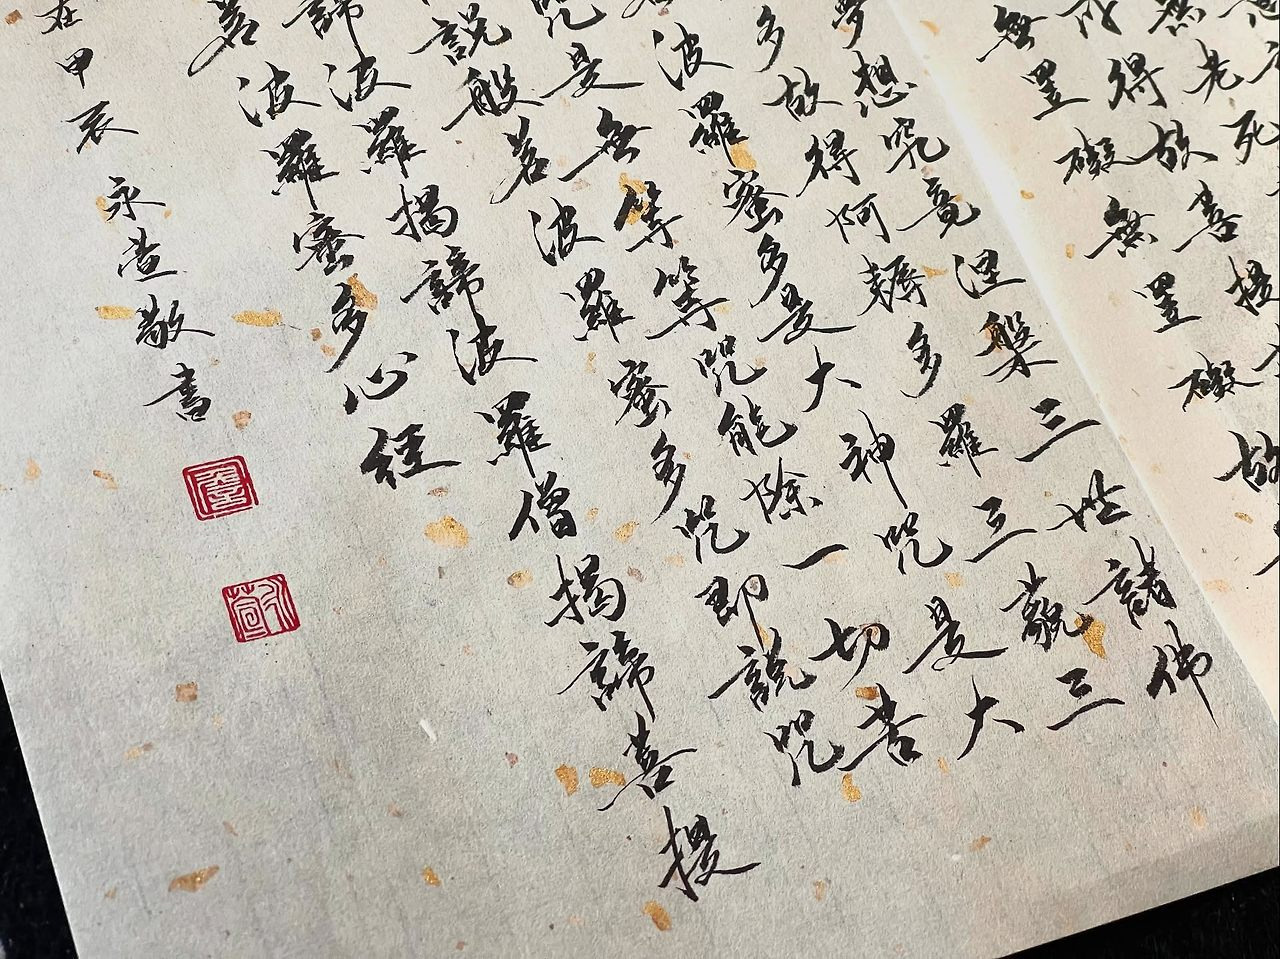 無老死
所得故菩提
無罣礙無罣礙故
夢想究竟涅槃三世諸佛
多故得阿耨多羅三藐三
若波羅蜜多是大神咒是大
咒是無等等咒能除一切苦
說般若波羅蜜多咒即說咒
諦波羅揭諦波羅僧揭諦菩提
若波羅蜜多心經
在甲辰永萱敬書